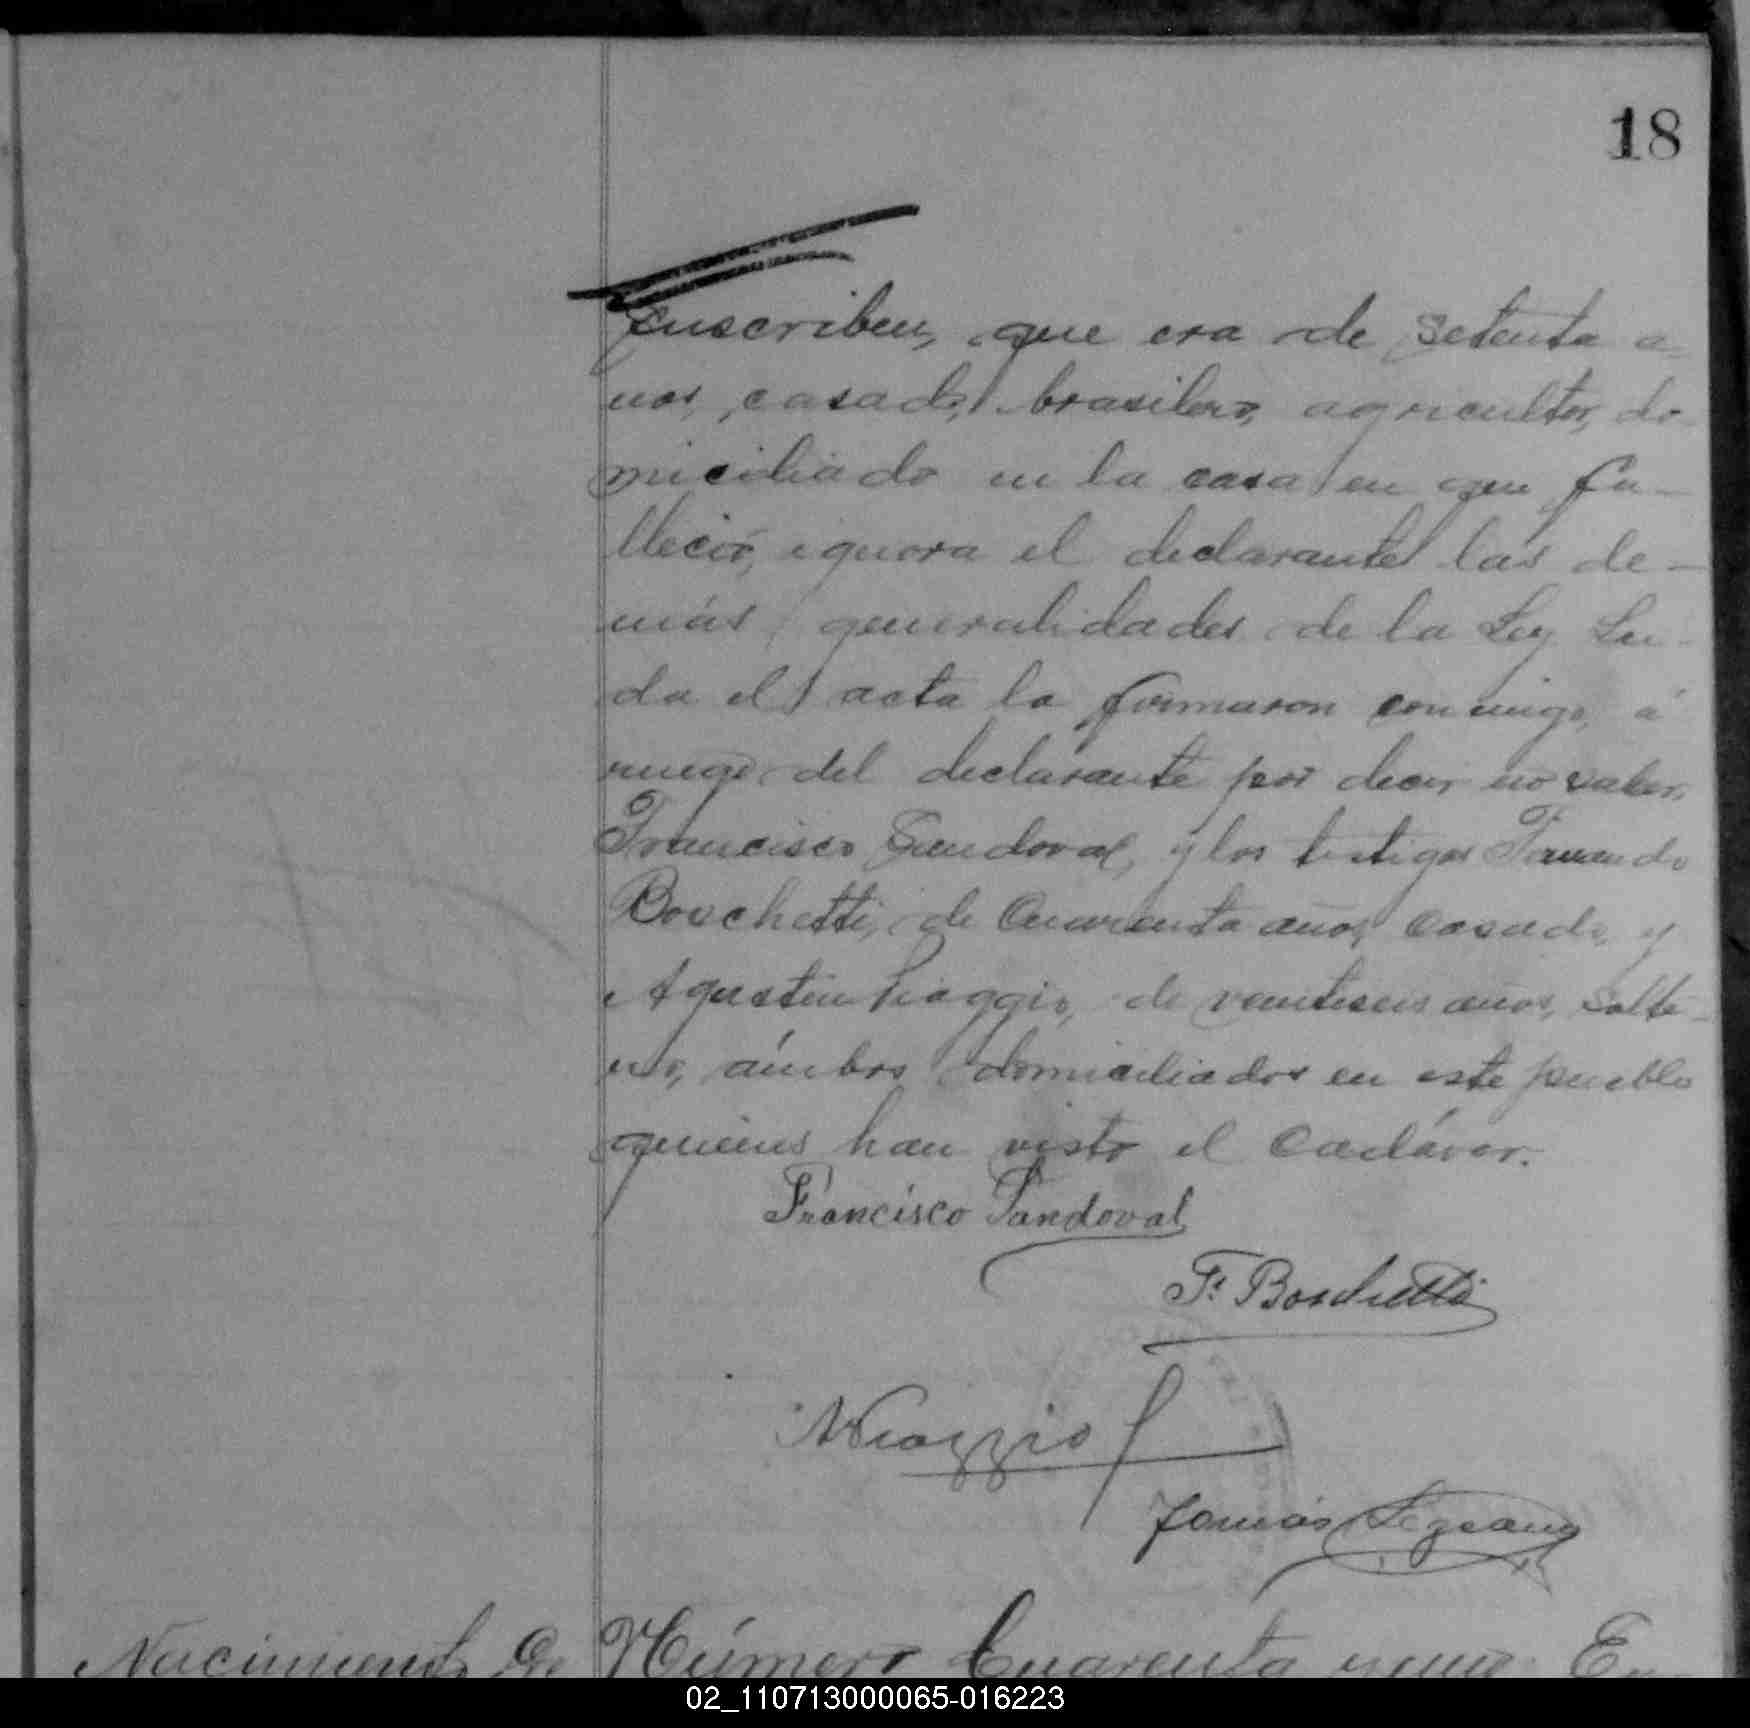 18
suscriben, que era de setenta a-
nos, casado, brasilero, agricultor, do-
miciliado en la casa en que fa-
lleció, ignora el declarante las de-
más generalidades de la Ley Lei-
da el acta la firmaron conmigo, á
ruego del declarante por decir no saber,
Francisco Sandoval, y los testigos Fernando
Boschetti, de cuarenta años, casado, y
Agustin Viaggio, de veintiseis años, solte-
ro, ámbos domiciliados en este pueblo
quienes han visto el cadáver.
Francisco Sandoval
F. Boschetti
AViaggio
Tomás
Nacimiento de Número Cuarenta y uno En
02_110713000065-016223